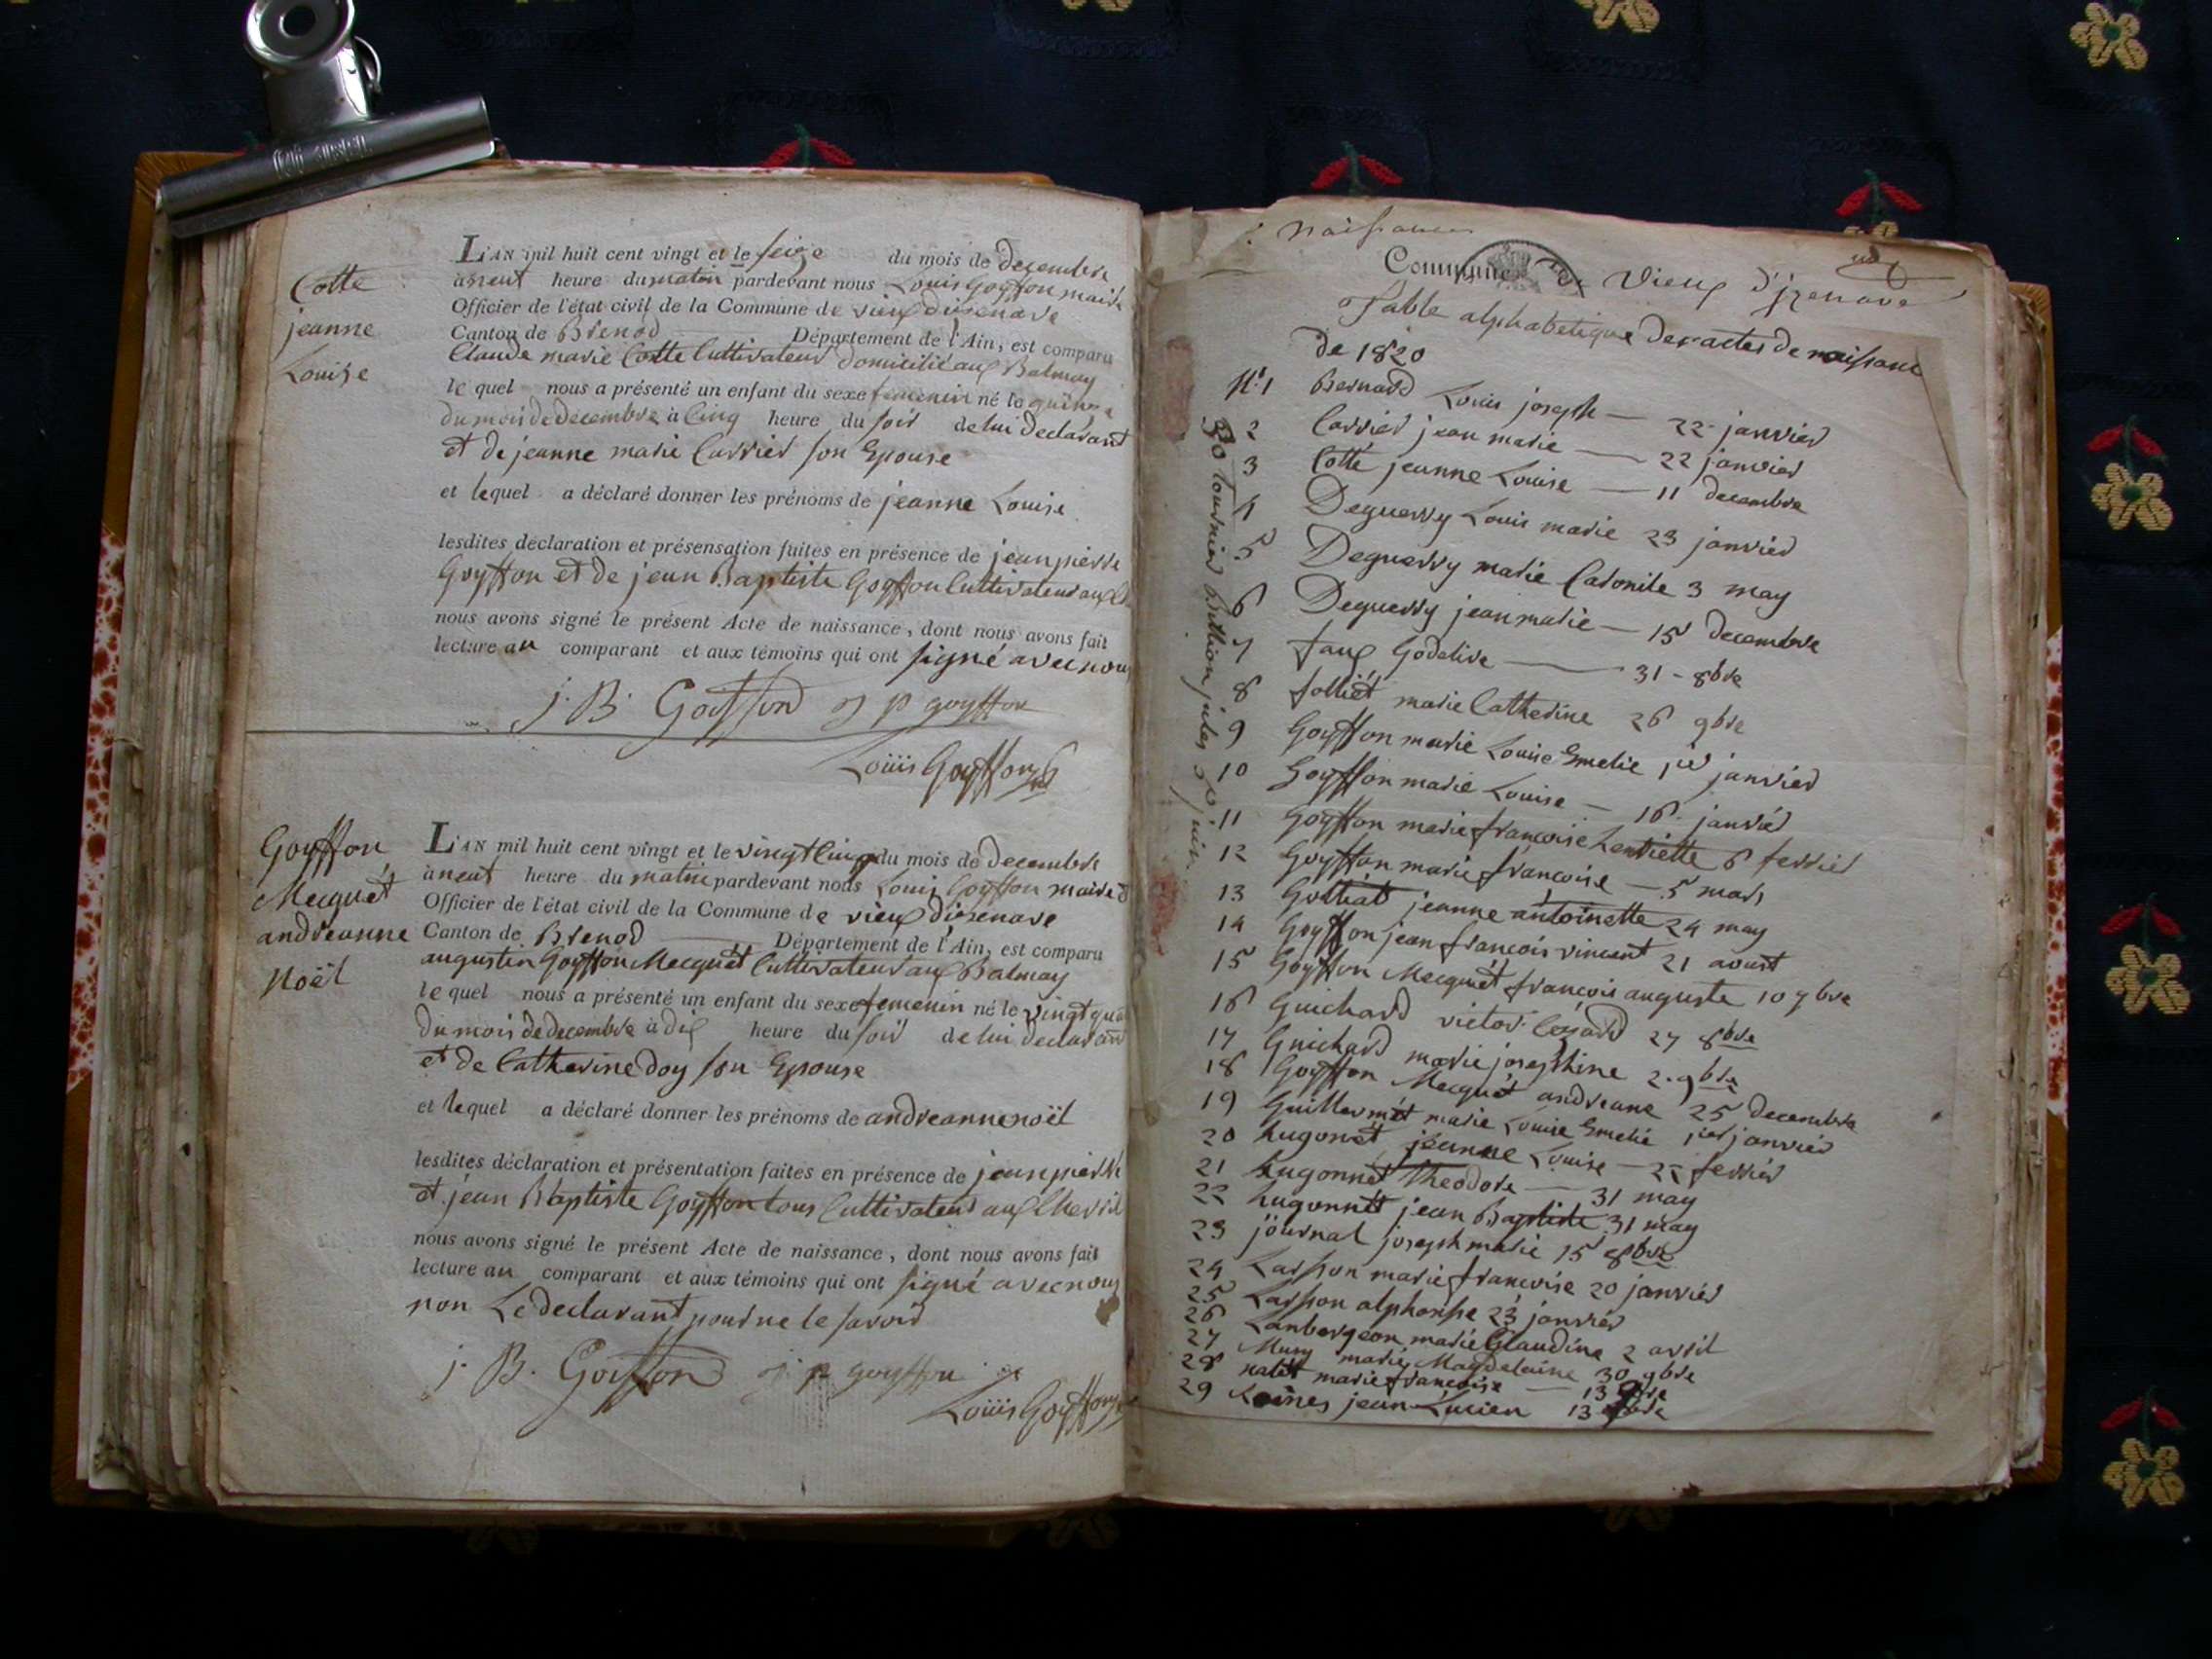 Cotte
jeanne
Louise
L'AN mil huit cent vingt et le seize du mois de decembre
a neuf heure du matin pardevant nous Louis Goyffon maire
Officier de l'état civil de la Commune de vieux dizenave
Canton de Brenod Département de l'Ain, est comparu
Claude marie Cotte Cultivateur domicilié aux Balmay
le quel nous a présenté un enfant du sexe femenin né le quinze
du mois de decembre à Cinq heure du soir de lui declarant
et de jeanne marie Carrier son Epouse
et lequel a déclaré donner les prénoms de jeanne Louise
lesdites déclaration et présensation faites en présence de jean pierre
Goyffon et de jean Baptiste Goyffon Cultivateur aux
nous avons signé le présent Acte de naissance, dont nous avons fait
lecture au comparant et aux témoins qui ont signé avec nous
J. B. Goiffon j p goyffon
Louis Goyffon
Goyffon
Mecquét
andreanne
Noël
L'AN mil huit cent vingt et le vingt cinq du mois de decembre
à neuf heure du matin pardevant nous Louis Goyffon maire
Officier de l'état civil de la Commune de vieux dizenave
Canton de Brenod Département de l'Ain, est comparu
augustin Goyffon Mecquét Cultivateur aux Balmay
le quel nous a présenté un enfant du sexe femenin né le vingt qua
du mois de decembre à dix heure du soir de lui declarant
et de Catherine doy son Epouse
et lequel a déclaré donner les prénoms de andreanne noël
lesdites déclaration et présentation faites en présence de jean pierre
et jean Baptiste Goyffon tous Cultivateurs aux
nous avons signé le présent Acte de naissance, dont nous avons fait
lecture au comparant et aux témoins qui ont signé avec nous
non Le declarant pour ne le savoir
j. B. Goiffon j. p goyffon
Louis Goyffon
Naissances
Commune de Vieux d'jzenave
Table alphabetique des actes de naissance
de 1820
N.º 1 Bernard Louis joseph — 22 janvier
2 Carrier jean marie — 22 janvier
3 Cotte jeanne Louise — 11 decembre
4 Deguerry Louis marie 23 janvier
5 Deguerry marie Catonite 3 may
6 Deguerry jean marie — 15 decembre
7 faux Godelive — 31 - 8bre
8 folliet marie Catherine 26 9bre
9 Goyffon marie Louise Emelie 1er janvier
10 Goyffon marie Louise — 16 janvier
11 Goyffon marie françoise henriette 6 fevrier
12 Goyffon marie françoise — 5 mars
13 jeanne antoinette 24 may
14 Goyffon jean françois vincent 21 aoust
15 Goyffon Mecquét françois auguste 10 7bre
16 Guichard victor Cezard 27 8bre
17 Guichard marie josephine 2 9bre
18 Goyffon Mecquét andreane 25 decembre
19 Guillermét marie Louise Emelie 1er janvier
20 hugonnét jeanne Louise — 25 fevrier
21 hugonnét Theodore — 31 may
22 hugonnét jean Baptiste 31 may
23 journal joseph marie 15 8bre
24 Larsson marie françoise 20 janvier
25 Larsson alphonse 23 janvier
26 Lanbergeon marie Claudine 2 avril
27 Muny marie Magdelaine 30 9bre
28 nalét marie françoise — 13
29 jean Lucien 13
30 tournier Buttion jules 30 juin